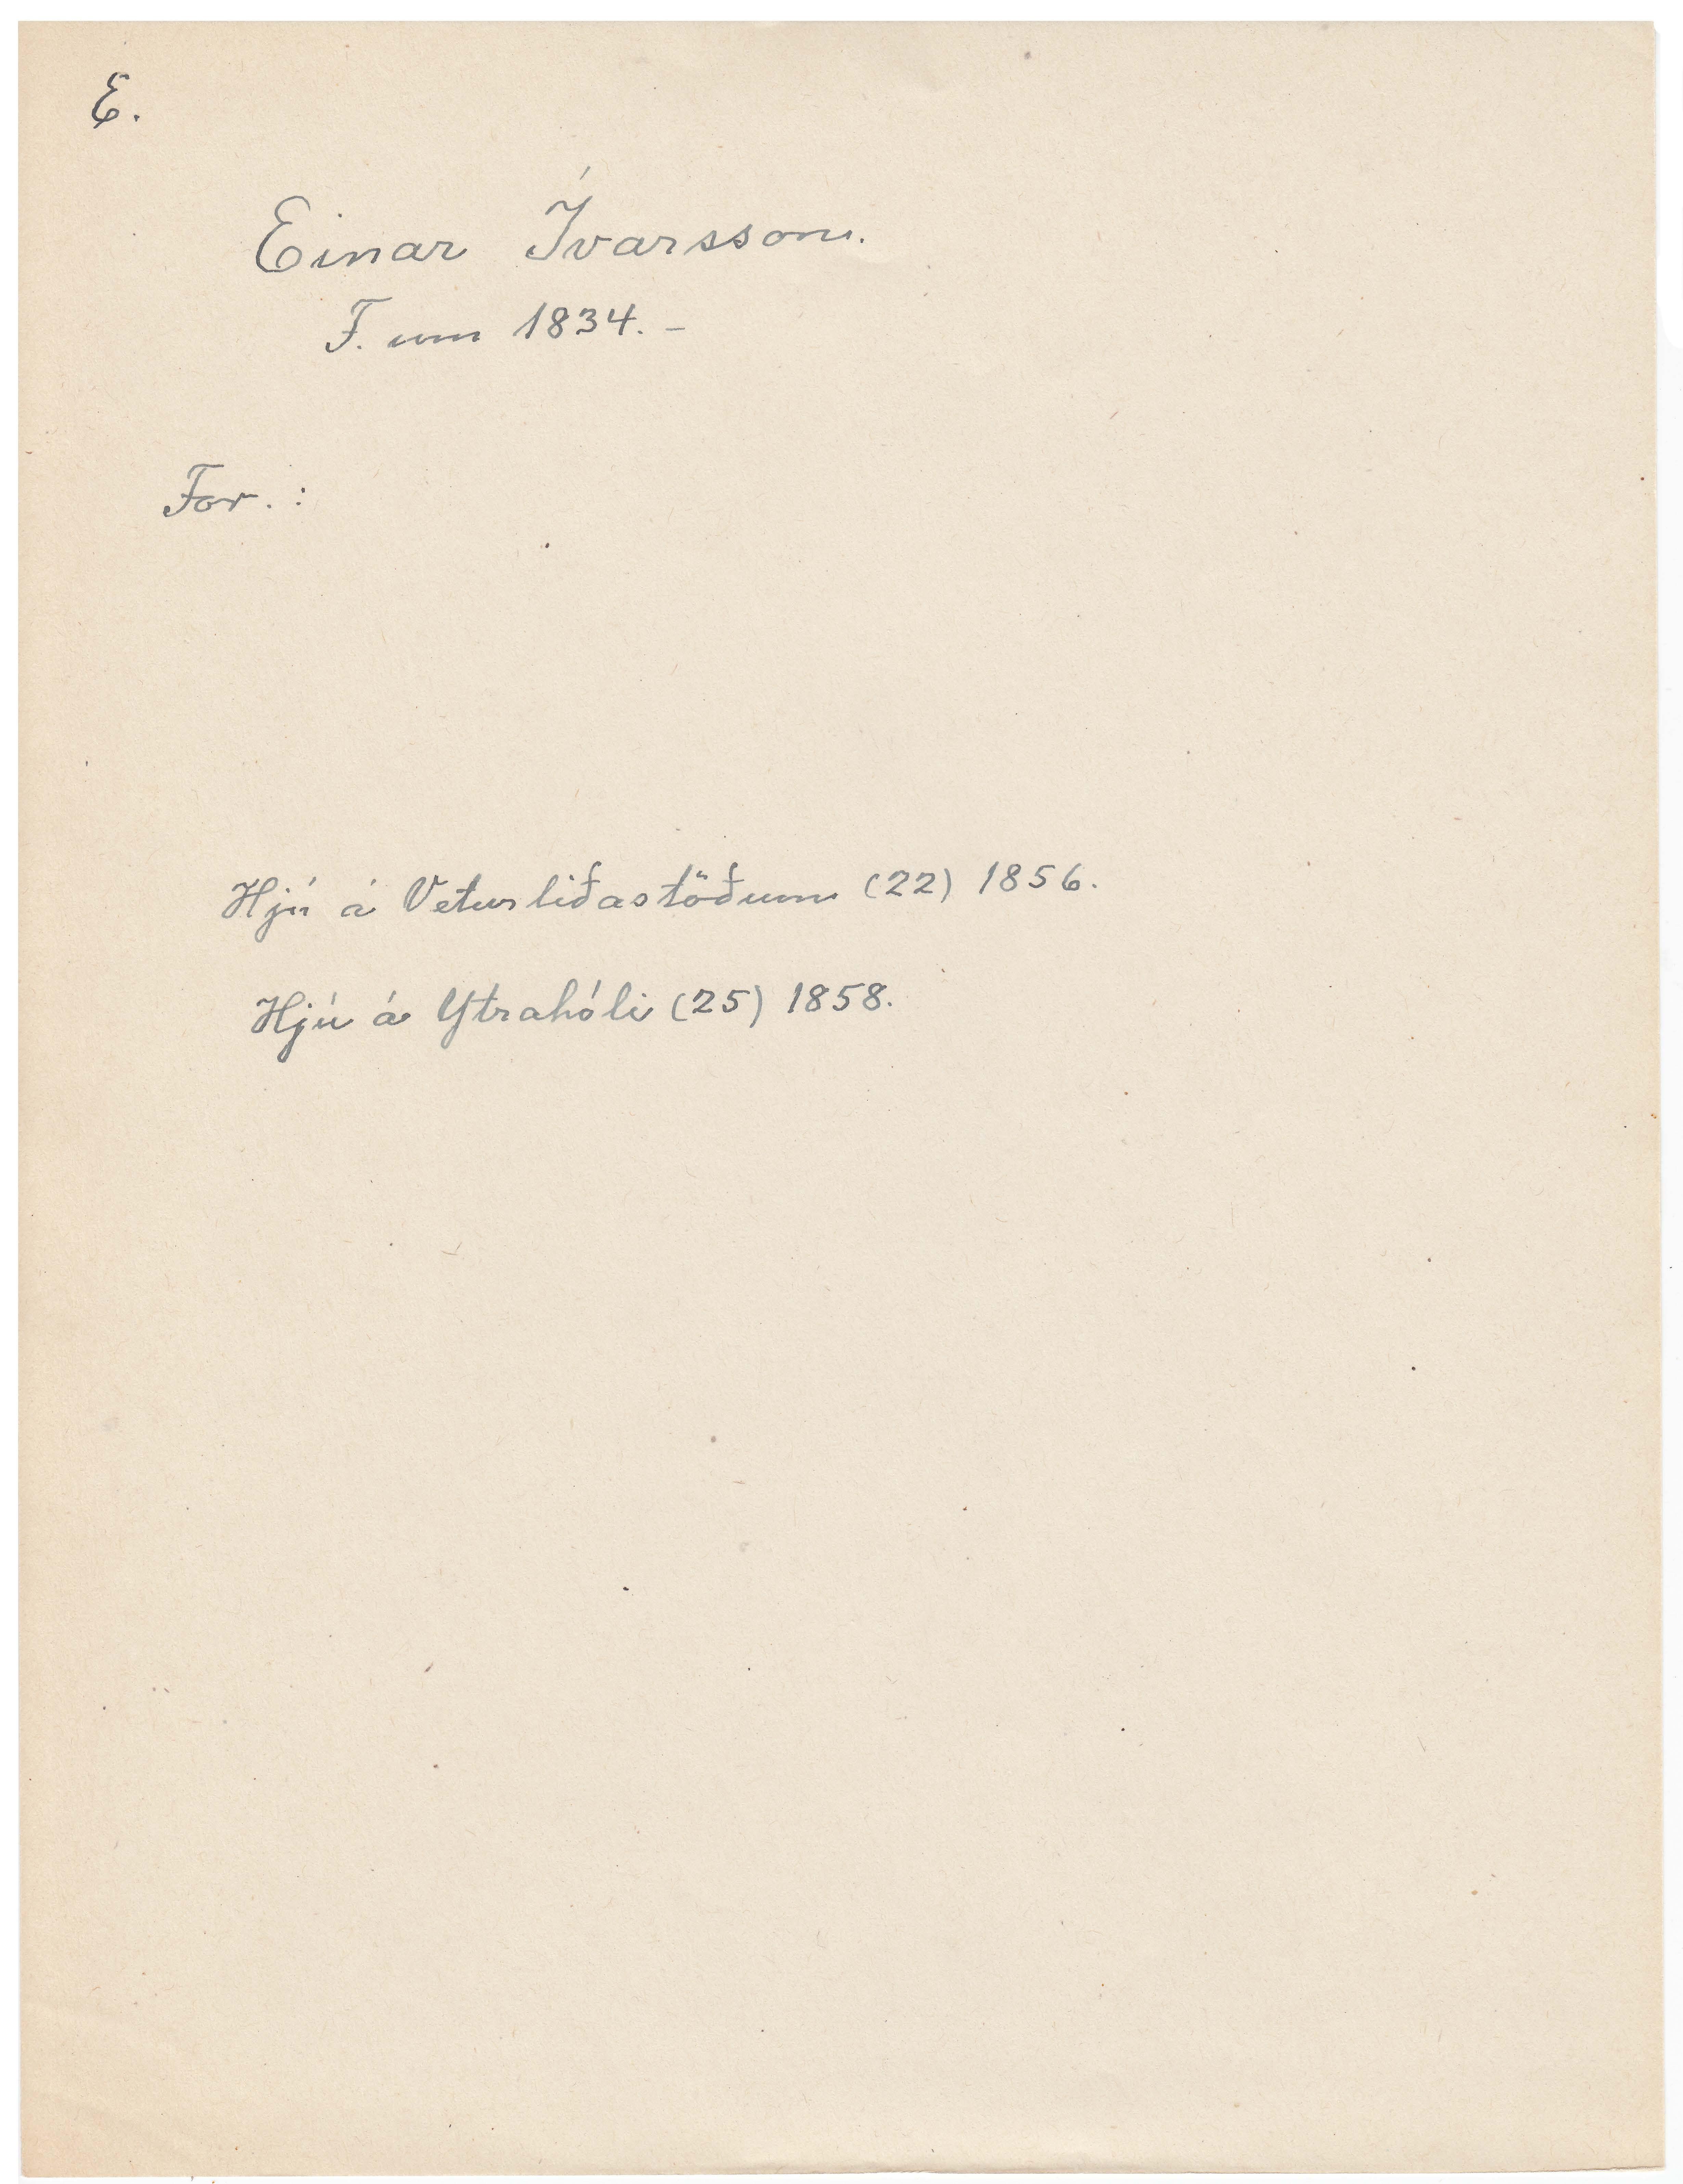 E.
Einar Ívarsson.
F. um 1834. –
For. :
Hjú á Veturliðastöðum (22) 1856.
Hjú á Ytrahóli (25) 1858.